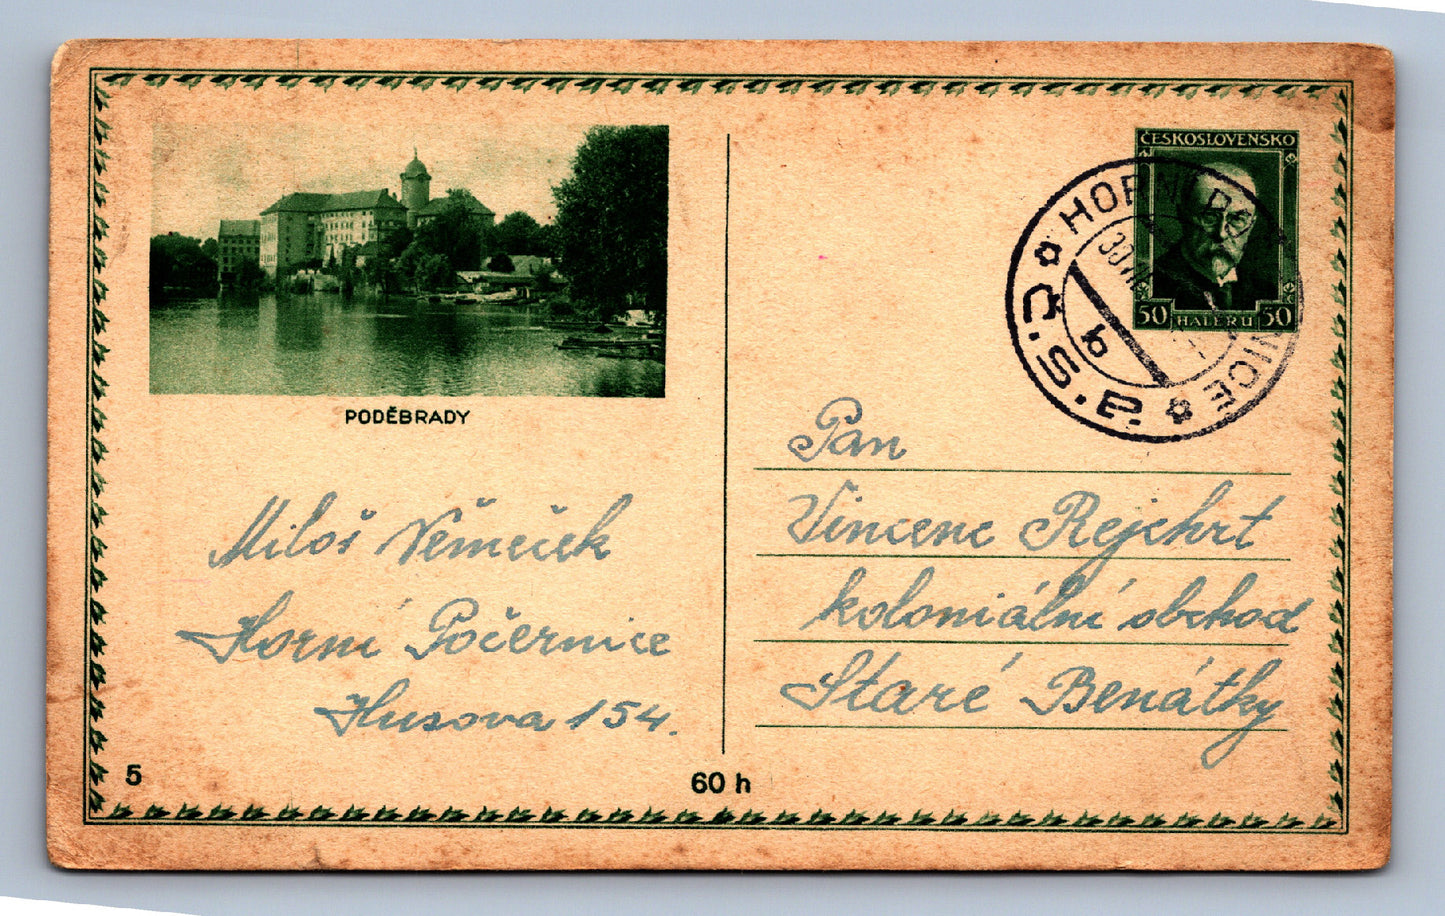 PODĚBRADY
Miloš Němeček
Horní Počernice
Husova 154.
5
60 h
ČESKOSLOVENSKO
50 HALÉRŮ 50
HORNÍ POČERNICE
Č.S.P.
b
Pan
Vincenc Rejchrt
koloniální obchod
Staré Benátky